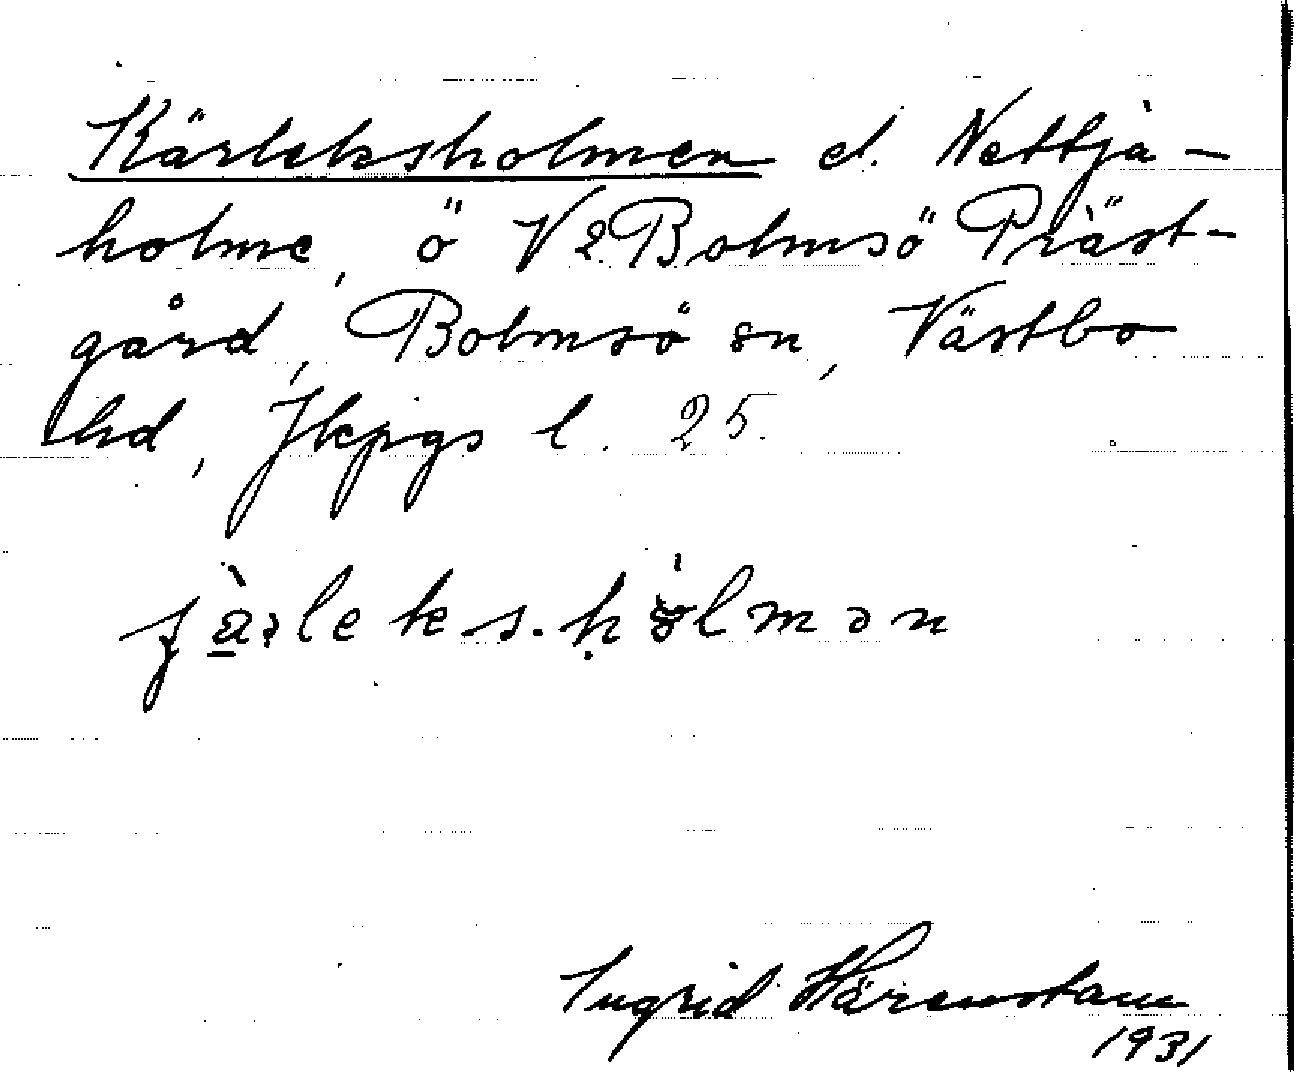 Kärleksholmen el. Nettja-
holme, ö V 2 Bolmsö Präst-
gård, Bolmsö sn, Västbo
hd, Jkpgs l. 25.
Ingrid Härenstam
1931